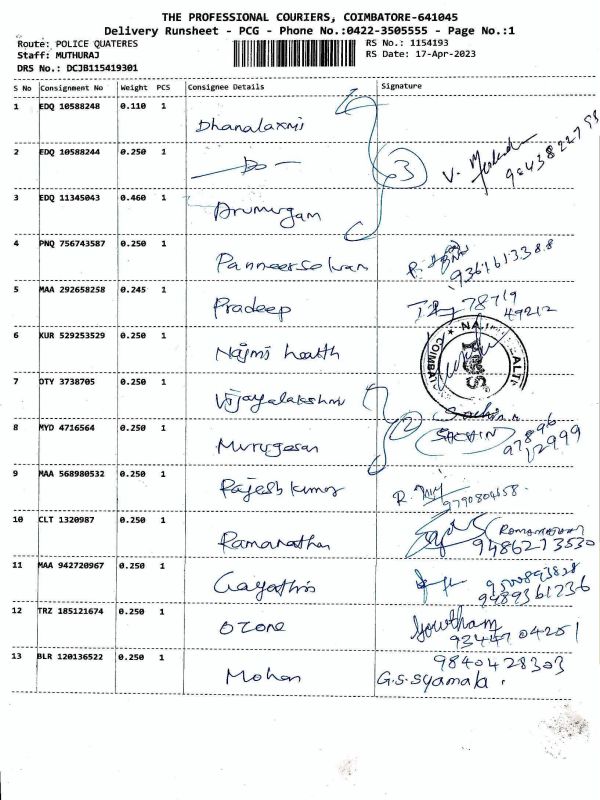 THE PROFESSIONAL COURIERS, COIMBATORE-641045
Delivery Runsheet - PCG - Phone No.:0422-3505555 - Page No.:1
Route: POLICE QUATERES
RS No.: 1154193
Staff: MUTHURAJ
RS Date: 17-Apr-2023
DRS No.: DCJB115419301
S No Consignment No Weight PCS Consignee Details Signature
1 EDQ 10588248 0.110 1 Dhanalaxmi
2 EDQ 10588244 0.250 1 - Do - 3 V.
3 EDQ 11345043 0.460 1 Arumugam
4 PNQ 756743587 0.250 1 Panneerselvam 9361613388
5 MAA 292658258 0.245 1 Pradeep 78719
49212
6 KUR 529253529 0.250 1 Najmi health
7 OTY 3738705 0.250 1 Vijayalakshmi
8 MYD 4716564 0.250 1 Murugesan 2 SACHIN 97896
12999
9 MAA 568980532 0.250 1 Rajesh kumar R.
10 CLT 1320987 0.250 1 Ramanathan
9486273530
11 MAA 942720967 0.250 1 Gayathri
9489361236
12 TRZ 185121674 0.250 1 Ozone Gowtham
9344704251
13 BLR 120136522 0.250 1 Mohan 9840428303
G.S.Syamala.